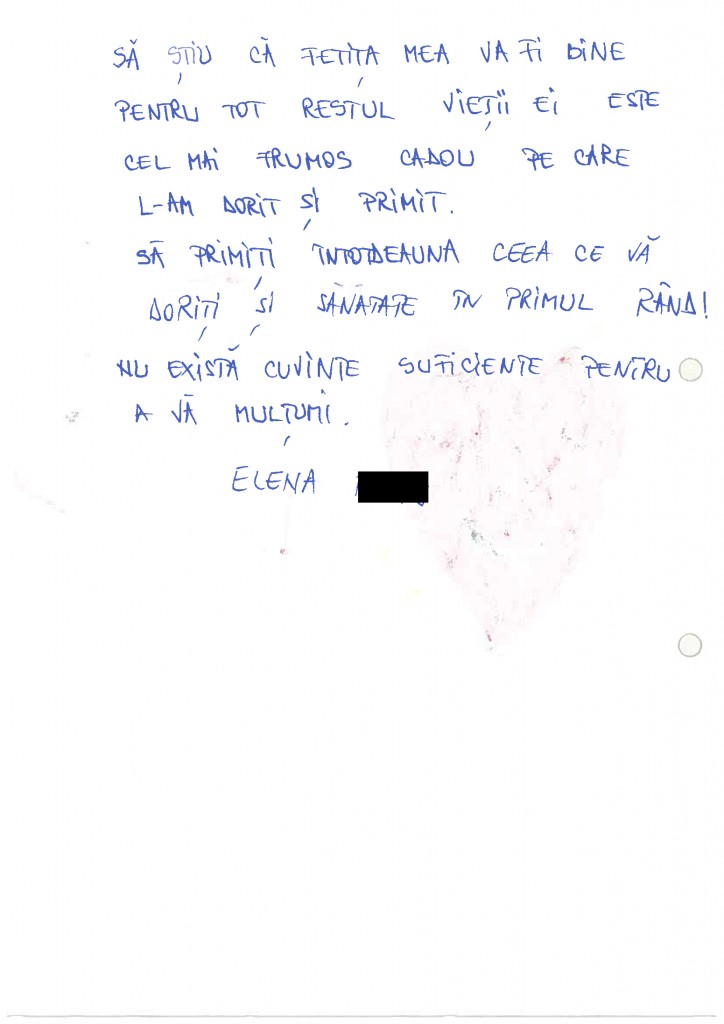 SĂ ȘTIU CĂ FETIȚA MEA VA FI BINE
PENTRU TOT RESTUL VIEȚII EI ESTE
CEL MAI FRUMOS CADOU PE CARE
L-AM DORIT ȘI PRIMIT.
SĂ PRIMIȚI ÎNTOTDEAUNA CEEA CE VĂ
DORIȚI ȘI SĂNĂTATE ÎN PRIMUL RÂND!
NU EXISTĂ CUVINTE SUFICIENTE PENTRU
A VĂ MULȚUMI.
ELENA